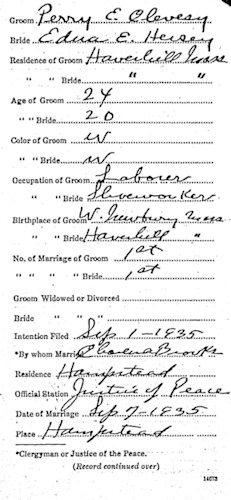 Groom Perry E. Clevesy
Bride Edna E. Hersey
Residence of Groom Haverhill Mass
" " Bride " "
Age of Groom 24
" " Bride 20
Color of Groom W
" " Bride W
Occupation of Groom Laborer
" " Bride Shoeworker
Birthplace of Groom W. Newbury Mass
" " Bride Haverhill "
No. of Marriage of Groom 1st
" " " " Bride 1st
Groom Widowed or Divorced
Bride " "
Intention Filed Sep 1-1935
*By whom Married Brooks
Residence Hampstead
Official Station Justice of Peace
Date of Marriage Sep 7-1935
Place Hampstead
*Clergyman or Justice of the Peace.
(Record continued over)